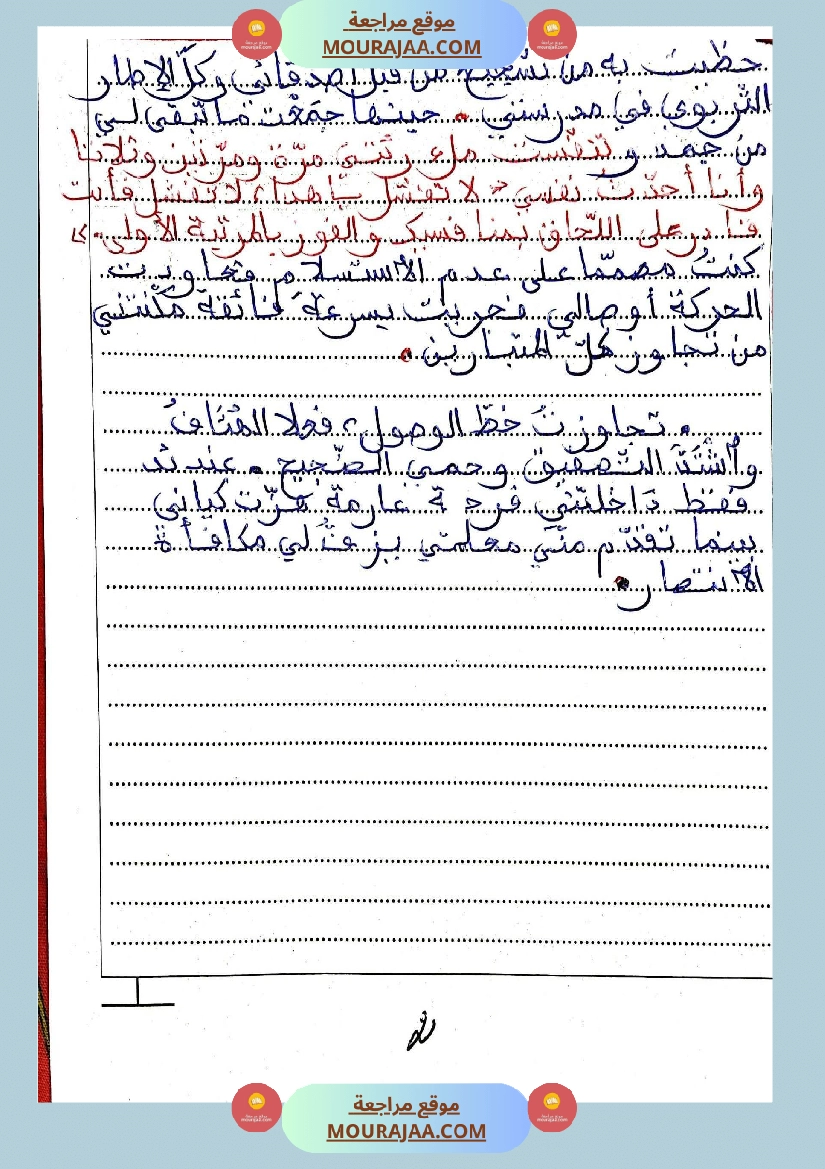 موقع مراجعة
MOURAJAA.COM
حظيت به من تشجيع من قبل أصدقائي وكلّ الإطار
التربوي في مدرستي. حينها جمّعت ما تبقى لي
من جهد و تنفّست ملء رئتيّ مرّة ومرّتين وثلاثا
وأنا أحدّث نفسي " لا تفشل يا هذا، لا تفشل فأنت
قادر على اللّحاق بمنافسيك والفوز بالمرتبة الأولى."
كنتُ مصمّما على عدم الاستسلام فتجاوبت
الحركة أوصالي فجريت بسرعة فائقة مكّنتني
من تجاوز كلّ المتبارين.
تجاوزتُ خطّ الوصول، فعلا الهُتَافُ
وٱشْتَدَّ التّصفيق وحمي الضّجيج. عندئذ
فقط دَاخلتني فرحة عارمة هزّت كياني
بينما تقدّم منّي معلمتي يزفّ لي مكافأة
الانتصار.
موقع مراجعة
MOURAJAA.COM